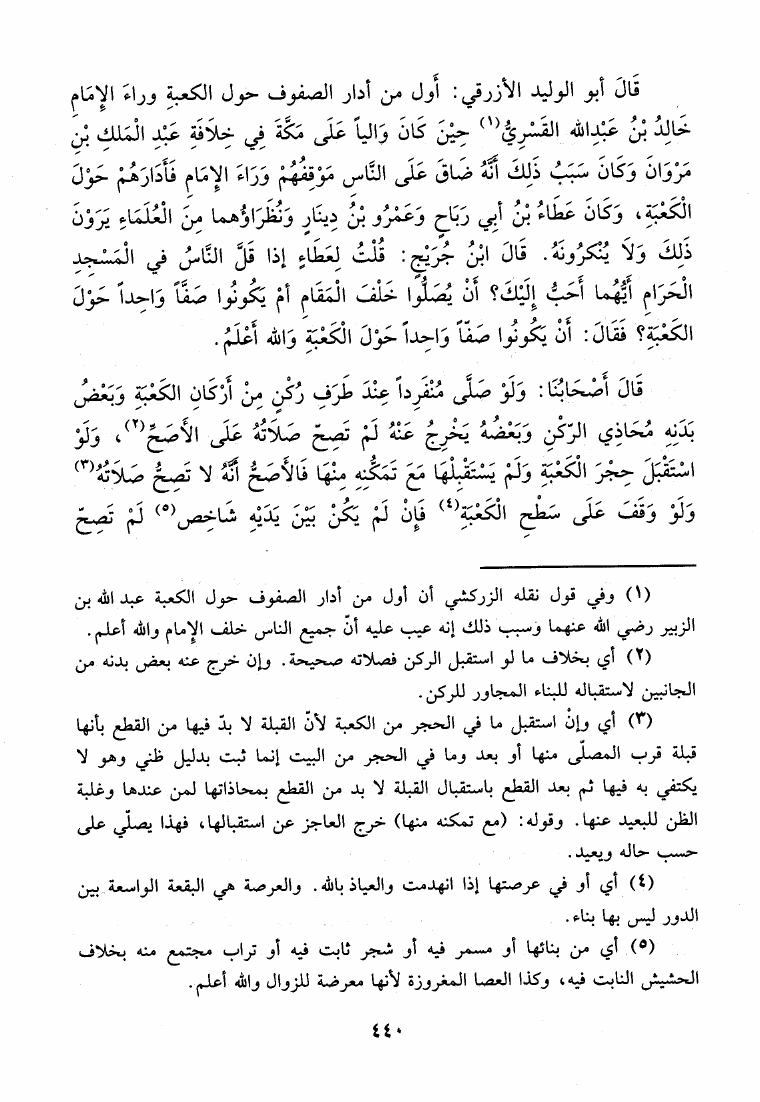 قَالَ أبو الوليد الأزرقي: أَول من أدار الصفوف حول الكعبةِ وراءَ الإِمَامِ
خَالِدُ بْنُ عَبْدِالله القَسْرِيُّ(١) حِيْنَ كَانَ وَالياً عَلَى مَكَّةَ فِي خِلَافَةِ عَبْدِ الْمَلكِ بْنِ
مَرْوَانَ وَكَانَ سَبَبُ ذَلِكَ أَنَّهُ ضَاقَ عَلَى النَّاسِ مَوْقِفُهُمْ وَرَاءَ الإِمَامِ فَأَدَارَهُمْ حَوْلَ
الْكَعْبَةِ، وَكَانَ عَطَاءُ بْنُ أبي رَبَاحٍ وَعَمْرُو بْنُ دِينَارٍ وَنُظَرَاؤُهما مِنَ الْعُلَمَاءِ يَرَوْنَ
ذَلِكَ وَلَا يُنْكرُونَهُ. قَالَ ابْنُ جُرَيْجٍ: قُلْتُ لِعَطَاءٍ إذا قَلَّ النَّاسُ في الْمَسْجِدِ
الْحَرَامِ أَيُّهُما أَحَبُّ إِلَيْكَ؟ أَنْ يُصَلُّوا خَلْفَ الْمَقَامِ أمْ يَكُونُوا صَفَّاً وَاحِداً حَوْلَ
الكَعْبَةِ؟ فَقَالَ: أَنْ يَكُونُوا صَفّاً وَاحِداً حَوْلَ الْكَعْبَةِ وَالله أَعْلَمُ.
قَالَ أَصْحَابُنَا: وَلَوْ صَلَّى مُنْفَرِداً عِنْدَ طَرَفِ رُكْنٍ مِنْ أَرْكَانِ الكَعْبَةِ وَبَعْضُ
بَدَنِهِ مُحَاذِي الرّكْنِ وَبَعْضُهُ يَخْرِجُ عَنْهُ لَمْ تَصِحّ صَلَاتُهُ عَلَى الأَصَحِّ(٢)، وَلَوْ
اسْتَقْبَلَ حِجْرَ الْكَعْبَةِ وَلَمْ يَسْتَقْبِلْهَا مَعَ تَمَكُّنِهِ مِنْهَا فَالأَصَحُّ أَنَّهُ لا تَصِحُّ صَلَاتُهُ(٣)
وَلَوْ وَقَفَ عَلَى سَطْحِ الْكَعْبَةِ(٤) فَإِنْ لَمْ يَكُنْ بَيْنَ يَدَيْهِ شَاخِص(٥) لَمْ تَصِحّ
(١) وفي قول نقله الزركشي أن أول من أدار الصفوف حول الكعبة عبد الله بن
الزبير رضي الله عنهما وسبب ذلك إنه عيب عليه أنّ جميع الناس خلف الإِمام والله أعلم.
(٢) أي بخلاف ما لو استقبل الركن فصلاته صحيحة. وإن خرج عنه بعض بدنه من
الجانبين لاستقباله للبناء المجاور للركن.
(٣) أي وإنْ استقبل ما في الحجر من الكعبة لأنّ القبلة لا بدّ فيها من القطع بأنها
قبلة قرب المصلّى منها أو بعد وما في الحجر من البيت إنما ثبت بدليل ظني وهو لا
يكتفي به فيها ثم بعد القطع باستقبال القبلة لا بد من القطع بمحاذاتها لمن عندها وغلبة
الظن للبعيد عنها. وقوله: (مع تمكنه منها) خرج العاجز عن استقبالها، فهذا يصلّي على
حسب حاله ويعيد.
(٤) أي أو في عرصتها إذا انهدمت والعياذ بالله. والعرصة هي البقعة الواسعة بين
الدور ليس بها بناء.
(٥) أي من بنائها أو مسمر فيه أو شجر ثابت فيه أو تراب مجتمع منه بخلاف
الحشيش النابت فيه، وكذا العصا المغروزة لأنها معرضة للزوال والله أعلم.
٤٤٠